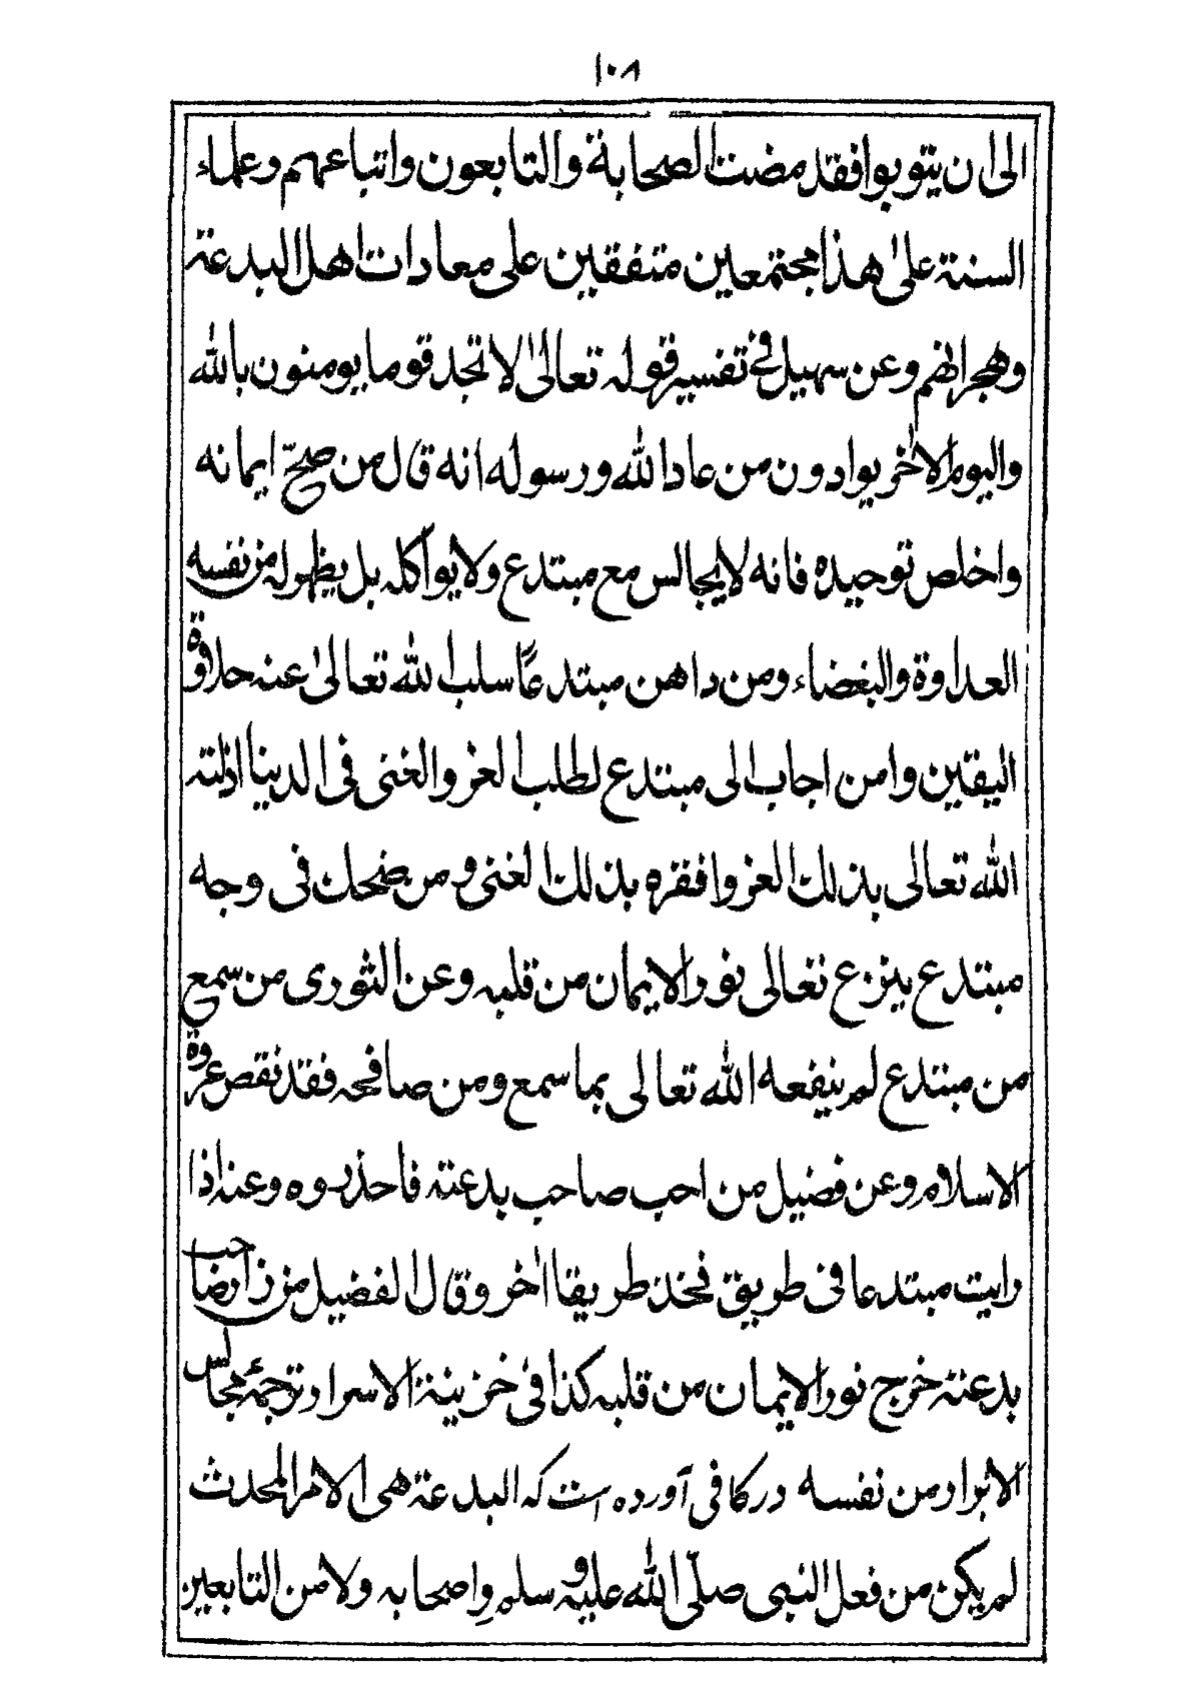 ١٠٨
الی ان یتوبوا فقد مضت الصحابة والتابعون واتباعهم وعلماء
السنة علیٰ هذا مجتمعین متفقین علی معادات اهل البدعة
وهجرانهم وعن سهیل فی تفسیر قوله تعالیٰ لا تجد قوما یومنون بالله
والیوم الاٰخر یوادون من عاد الله ورسوله انه قال من صحّ ایمانه
واخلص توحیده فانه لا یجالس مع مبتدع ولا یواکله بل یظهر له من نفسه
العداوة والبغضاء ومن داهن مبتدعاً سلب الله تعالیٰ عنه حلاوة
الیقین وامن اجاب الی مبتدع لطلب العز والغنی فی الدینا اذلته
الله تعالی بذلك العز وافقره بذلك الغنی ومن ضحك فی وجه
مبتدع ینزع تعالی نور الایمان من قلبه وعن الثوری من سمع
من مبتدع لم ینفعه الله تعالی بما سمع ومن صافحه فقد نقص عروة
الاسلام وعن فضیل من احب صاحب بدعته فاحذروه وعنه اذا
رایت مبتدعا فی طریق فخذ طریقا اٰخر وقال الفضیل من زار صاحب
بدعته خرج نور الایمان من قلبه کذا فی خزینة الاسرار ترجمۂ مجالس
الابرار من نفسه درکافی آورده است که البدعة هی الامر المحدث
لم یکن من فعل النبی صلّی الله علیه وسلم واصحابه ولا من التابعین